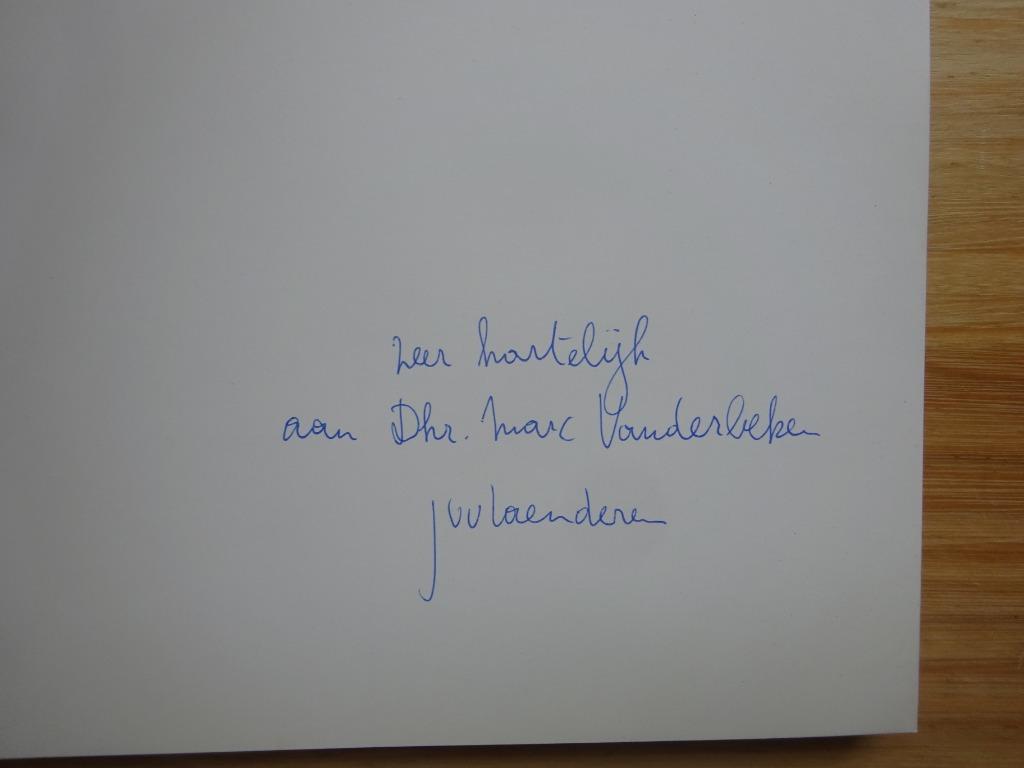 zeer hartelijk
aan Dhr. Marc Vanderbeken
jvvlaenderen